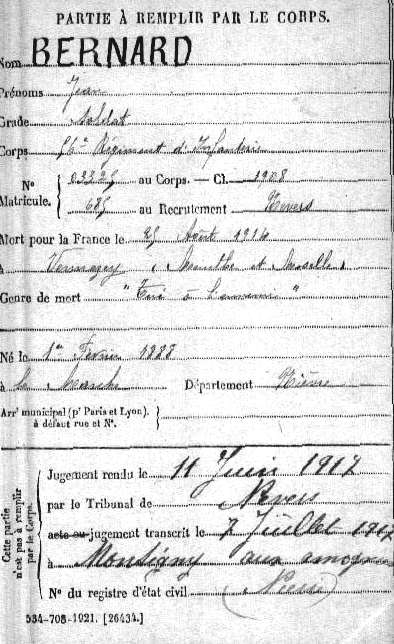 PARTIE À REMPLIR PAR LE CORPS.
Nom BERNARD
Prénoms Jean
Grade soldat
Corps 56e Régiment d'Infanterie
N° Matricule. { 03325 au Corps. — Cl. 1908
685 au Recrutement Nevers
Mort pour la France le 25 Août 1914
à (Meurthe et Moselle)
Genre de mort "Tué à l'ennemi"
Né le 1er Février 1888
à la Marche Département Nièvre
Arrt municipal (pr Paris et Lyon), à défaut rue et N°. }
Cette partie n'est pas à remplir par le Corps.
Jugement rendu le 11 Juin 1917
par le Tribunal de Nevers
acte ou jugement transcrit le 7 Juillet 1917
à Montigny aux amognes
N° du registre d'état civil (Nièvre)
534-708-1921. [26434.]